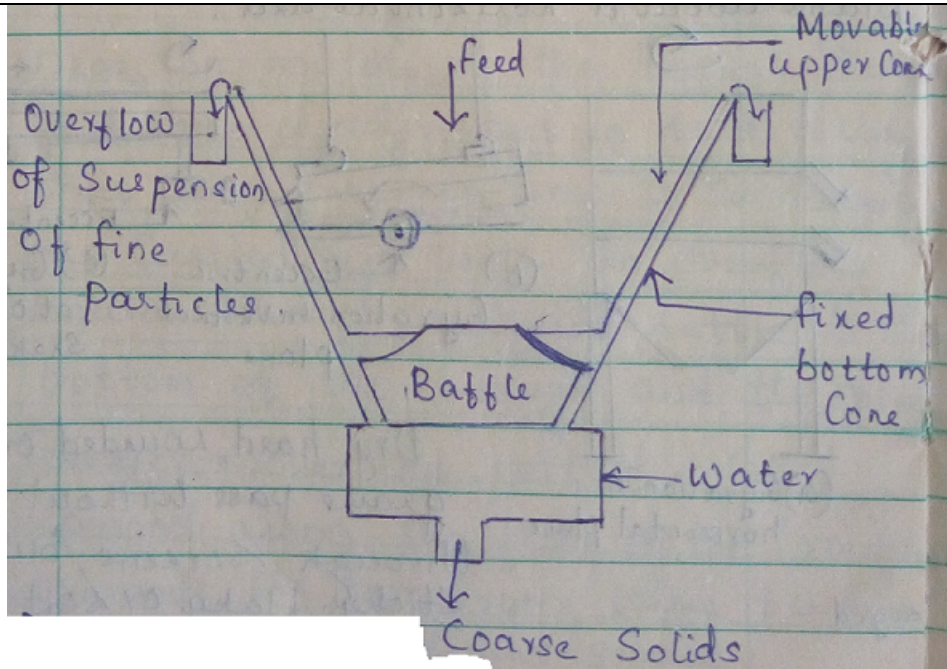 Feed
Movable
upper Cone
Overflow
of Suspension
of fine
particles
fixed
bottom
Cone
Baffle
Water
Coarse Solids